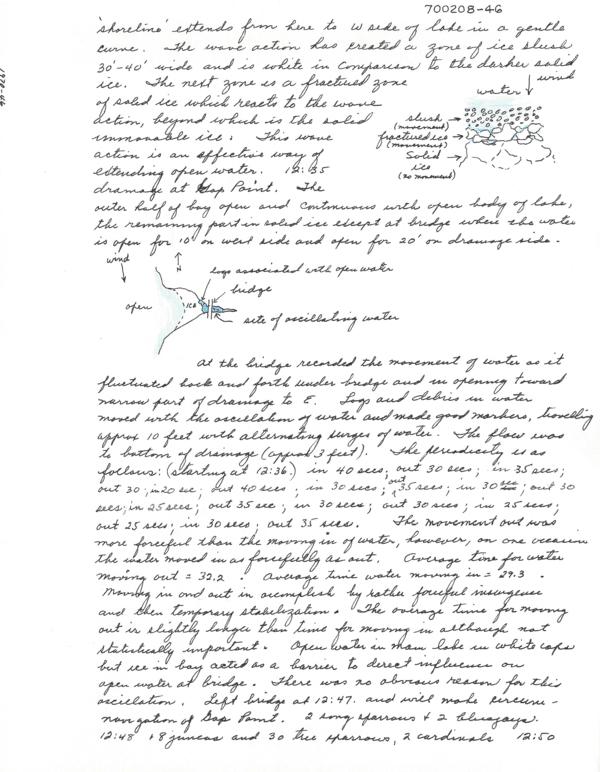 700208-46
'shoreline' extends from here to W side of lake in a gentle
curve. The wave action has created a zone of ice slush
30'-40' wide and is white in comparison to the darker solid
ice. The next zone is a fractured zone
of solid ice which reacts to the wave
action, beyond which is the solid
immovable ice. This wave
action is an effective way of
extending open water. 12:35
drainage at Gap Point. The
water
wind
slush
(movement)
fractured ice
(movement)
Solid
ice
(no movement)
outer half of bay open and continuous with open body of lake,
the remaining part in solid ice except at bridge where the water
is open for 10' on west side and open for 20' on drainage side.
wind
N
logs associated with open water
bridge
open
ICE
site of oscillating water
At the bridge recorded the movement of water as it
fluctuated back and forth under bridge and in opening toward
narrow part of drainage to E. Logs and debris in water
moved with the oscillation of water and made good markers, travelling
approx 10 feet with alternating surges of water. The flow was
to bottom of drainage (approx 3 feet). The periodicity is as
follows: (starting at 12:36.) in 40 secs; out 30 secs; in 35 secs;
out 30; in 20 sec; out 40 secs; in 30 secs; out 35 secs; in 30 secs; out 30
secs; in 25 secs; out 35 sec; in 30 secs; out 30 secs; in 25 secs;
out 25 secs; in 30 secs; out 35 secs. The movement out was
more forceful than the moving in of water, however, on one occasion
the water moved in as forcefully as out. Average time for water
moving out = 32.2. Average time water moving in = 29.3.
Moving in and out in accomplish by rather forceful insurgence
and then temporary stabilization. The average time for moving
out is slightly longer than time for moving in although not
statistically important. Open water in main lake in white caps
but ice in bay acted as a barrier to direct influence on
open water at bridge. There was no obvious reason for this
oscillation. Left bridge at 12:47. and will make circum-
navigation of Gap Point. 2 song sparrows + 2 bluejays.
12:48 +8 juncos and 30 tree sparrows, 2 cardinals 12:50